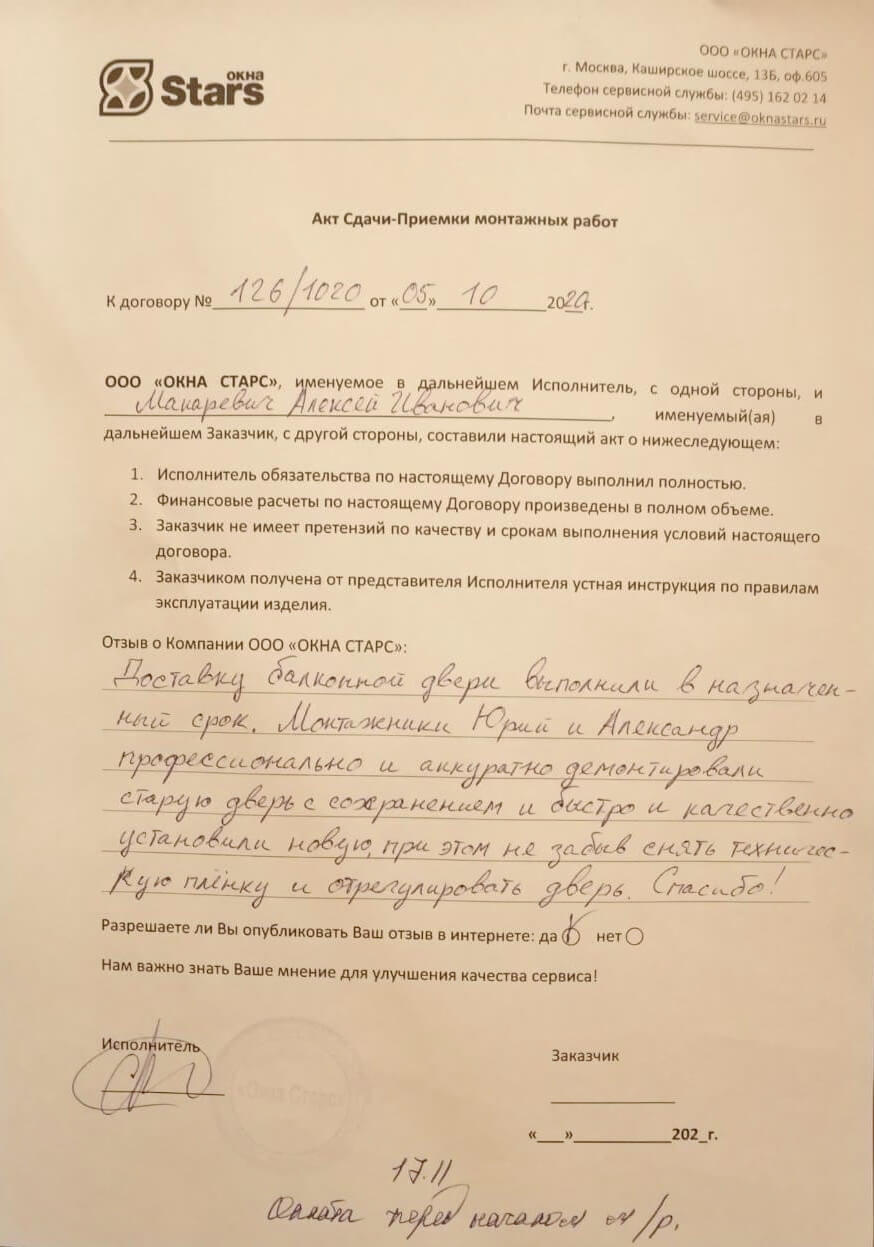 окна
Stars
ООО «ОКНА СТАРС»
г. Москва, Каширское шоссе, 13Б, оф.605
Телефон сервисной службы: (495) 162 02 14
Почта сервисной службы: service@oknastars.ru
Акт Сдачи-Приемки монтажных работ
К договору № 126/1020 от «05» 10 2020г.
ООО «ОКНА СТАРС», именуемое в дальнейшем Исполнитель, с одной стороны, и
Макаревич Алексей Иванович, именуемый(ая) в
дальнейшем Заказчик, с другой стороны, составили настоящий акт о нижеследующем:
1. Исполнитель обязательства по настоящему Договору выполнил полностью.
2. Финансовые расчеты по настоящему Договору произведены в полном объеме.
3. Заказчик не имеет претензий по качеству и срокам выполнения условий настоящего
договора.
4. Заказчиком получена от представителя Исполнителя устная инструкция по правилам
эксплуатации изделия.
Отзыв о Компании ООО «ОКНА СТАРС»:
Доставку балконной двери выполнили в назначен-
ный срок. Монтажники Юрий и Александр
профессионально и аккуратно демонтировали
старую дверь с сохранением и быстро и качественно
установили новую, при этом не забыв снять техничес-
кую плёнку и отрегулировать дверь. Спасибо!
Разрешаете ли Вы опубликовать Ваш отзыв в интернете: да нет
Нам важно знать Ваше мнение для улучшения качества сервиса!
Исполнитель
«Окна Старс»
Заказчик
«___»__________202_г.
17.11
Оплата перед началом м/р.